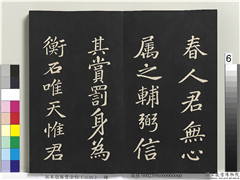 春人君無心
属之輔弼信
其賞罰身為
衡石唯天惟君
6